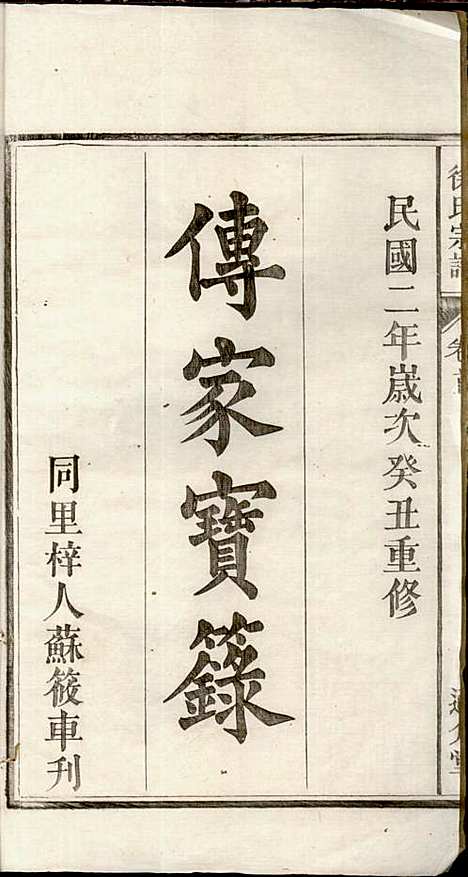 徐氏宗譜
卷首
民國二年歲次癸丑重修
傳家寶籙
同里梓人蘇筱車刊